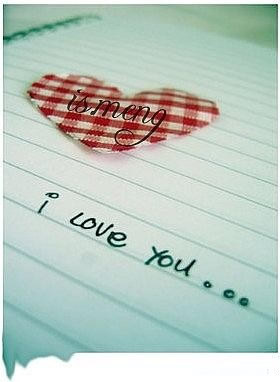 ismeng
i love you...